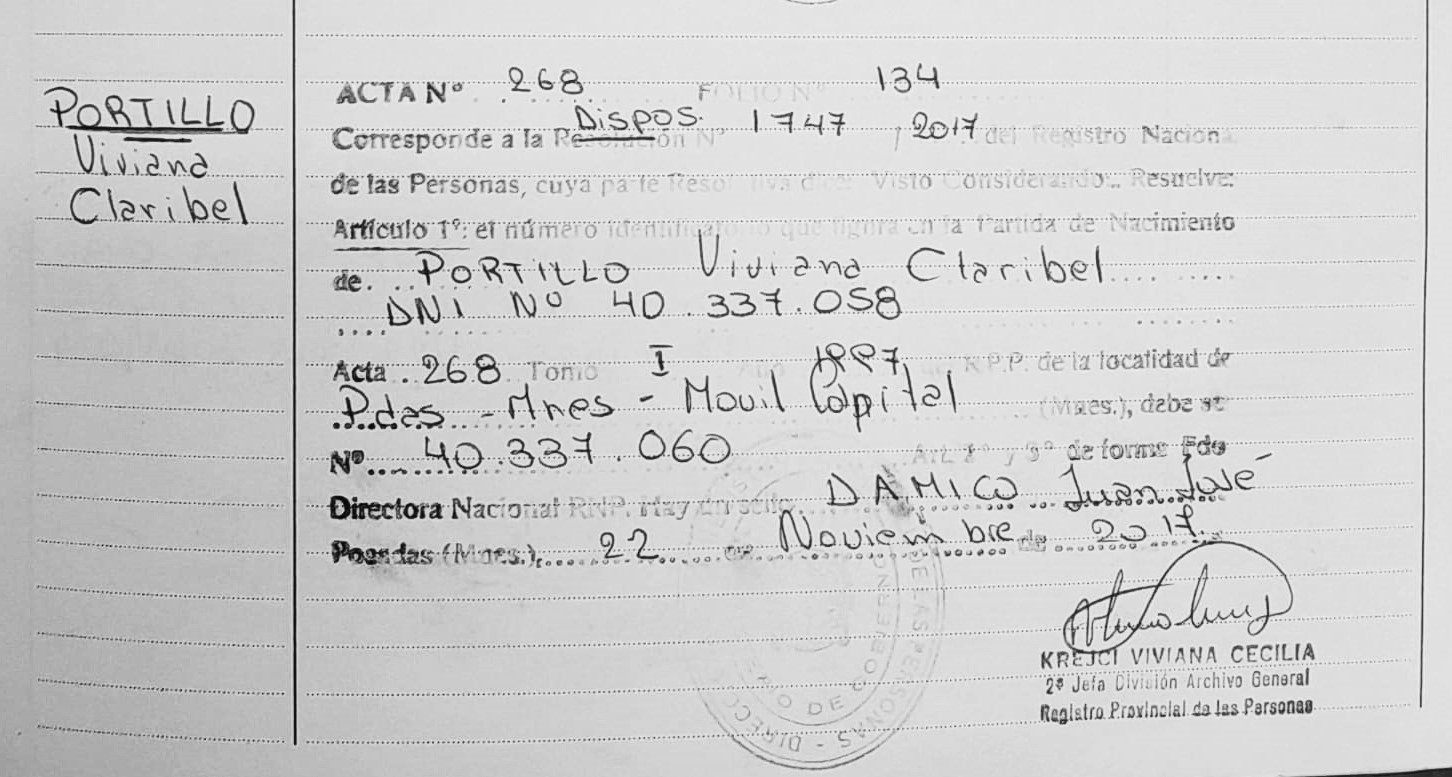 PORTILLO
Viviana
Claribel
ACTA Nº 268 FOLIO Nº 134
Corresponde a la Resolución Nº Dispos. 1747 / 2017 del Registro Naciona
de las Personas, cuya parte Resolutiva dice: Visto Considerando:.. Resuelve:
Artículo 1º: el número identificatorio que figura en la Partida de Nacimiento
de. PORTILLO Viviana Claribel
DNI Nº 40.337.058
Acta 268 Tomo I Año 1997, R.P.P. de la localidad de
Pdas - Mnes - Movil Capital (Mnes.), debe se
Nº 40.337.060 Art. 2º y 3º de forma Fdo
Directora Nacional RNP. Hay un sello. DAMICO Juan José
Posadas (Mnes.), 22 de Noviembre de 2017
KREJCI VIVIANA CECILIA
2ª Jefa División Archivo General
Registro Provincial de las Personas